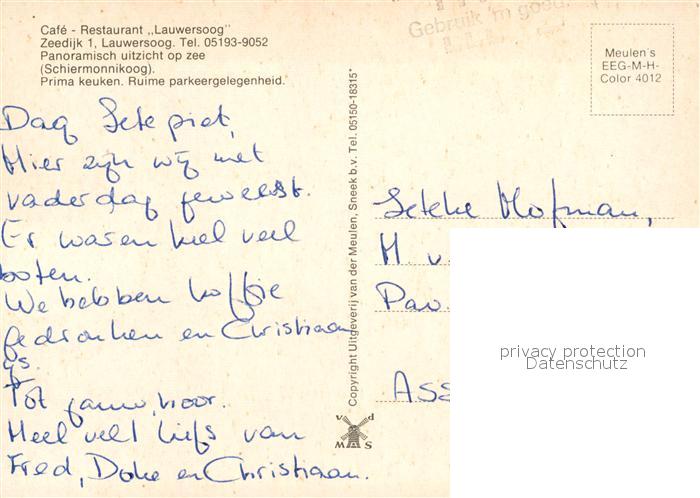 Café - Restaurant ,,Lauwersoog"
Zeedijk 1, Lauwersoog. Tel. 05193-9052
Panoramisch uitzicht op zee
(Schiermonnikoog).
Prima keuken. Ruime parkeergelegenheid.
Gebruik 'm goed
Meulen's
EEG-M-H-
Color 4012
Dag
Hier zijn wij met
vaderdag geweest.
Er waren heel veel
boten.
We hebben koffie
gedronken en Christiaan
ijs.
Tot gauw, hoor.
Heel veel liefs van
Fred, Doke en Christiaan.
Copyright Uitgeverij van der Meulen, Sneek b.v. Tel. 05150-18315*
v d
M S
Hofman,
M. v.
Pav
ASS
privacy protection
Datenschutz